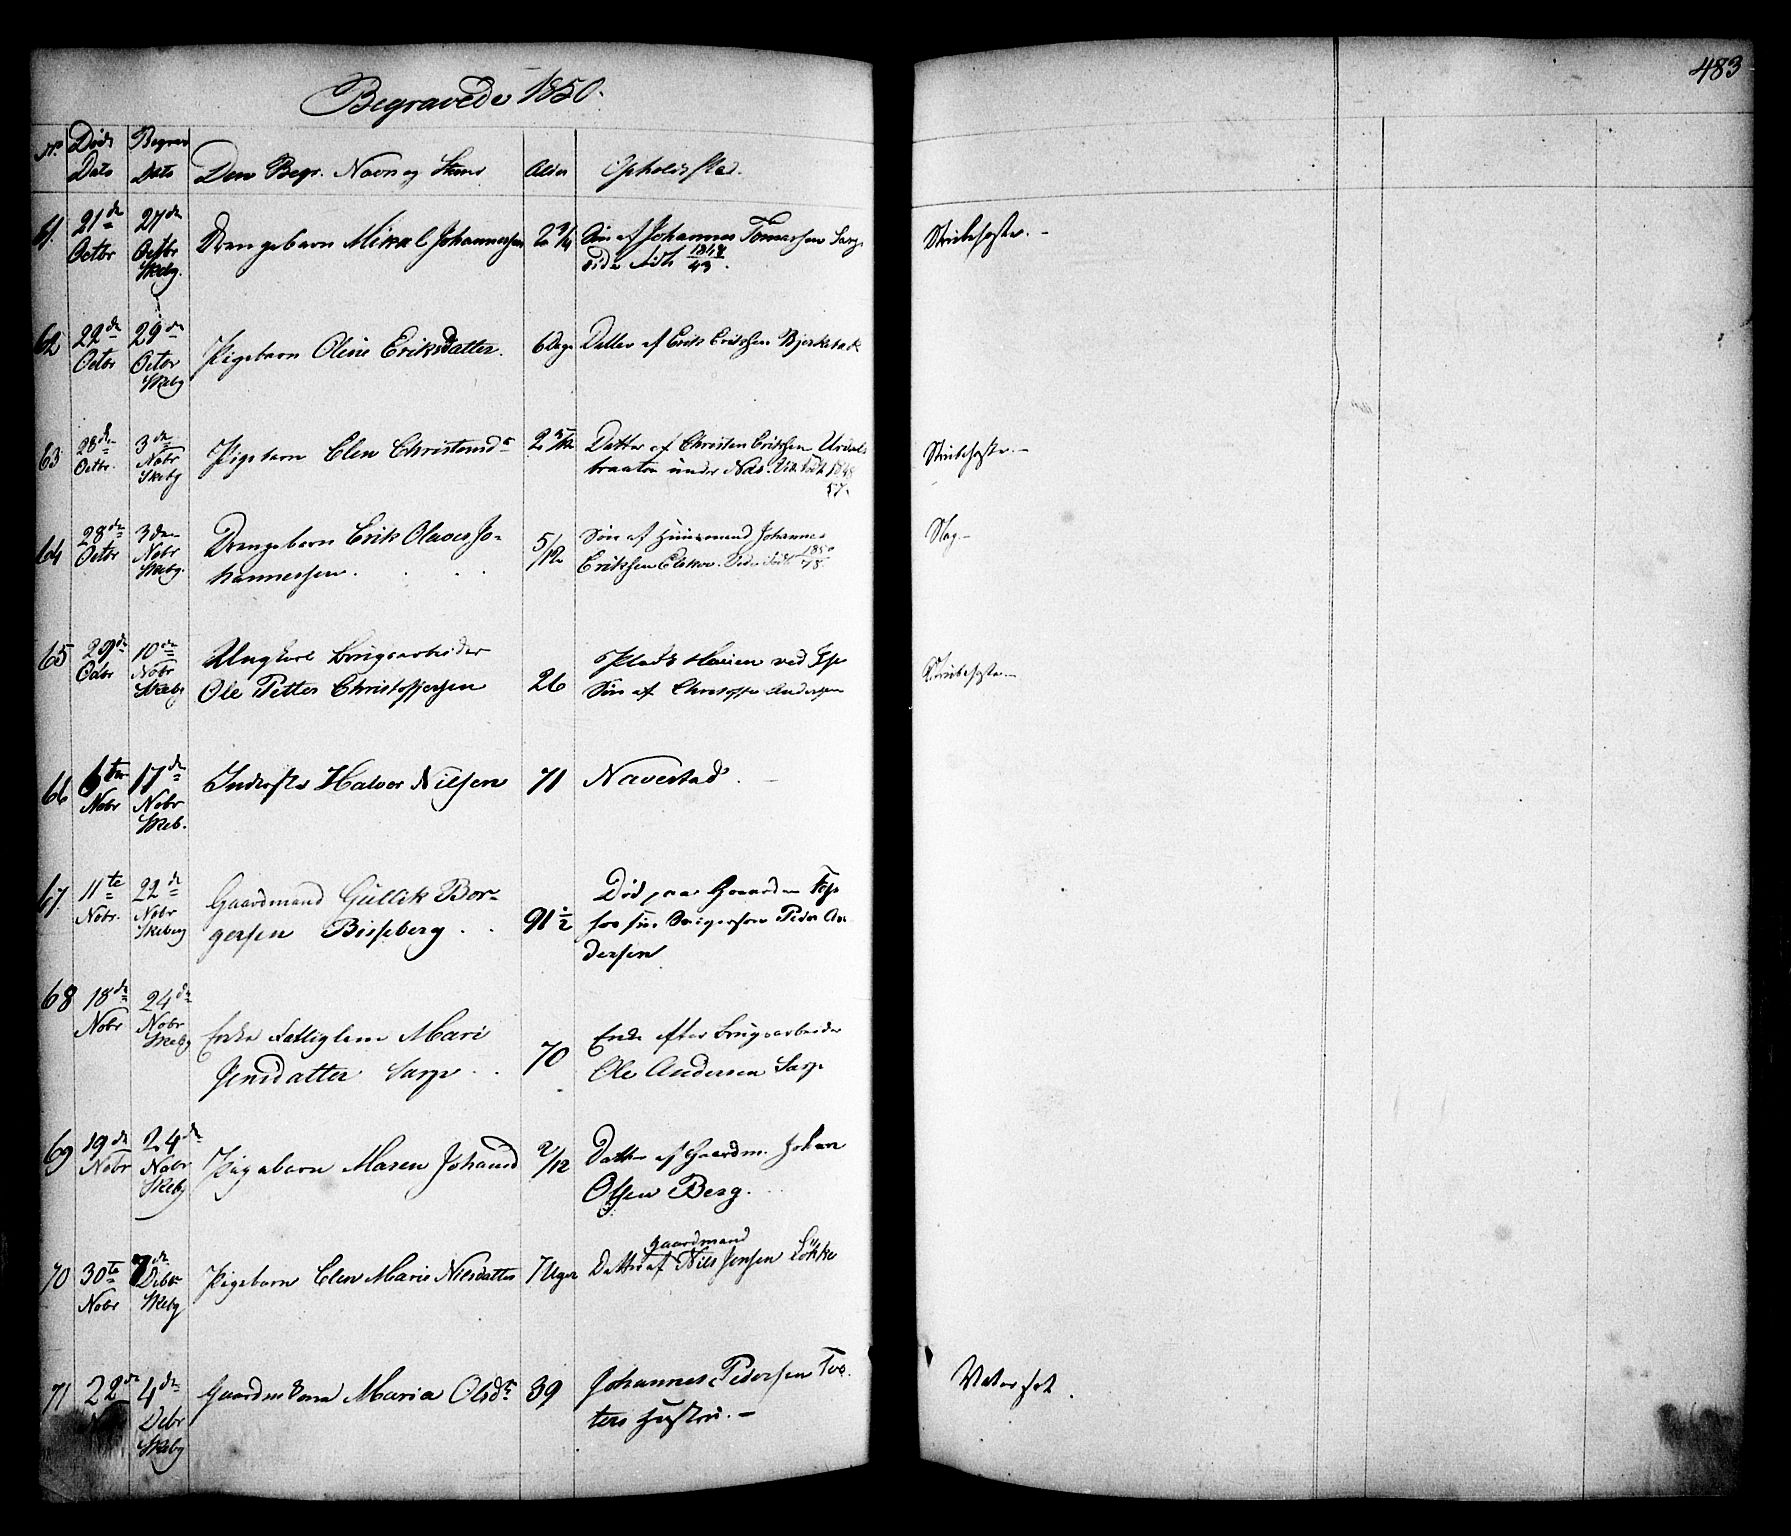 483
Begravede 1850.
No Døds Dato Begrav Dato Den Begr. Navn og Stand Alder Opholdssted.
61. 21de Octbr 27de Octbr Skebg. Drengebarn Mikal Johannessen 2 3/4 Søn af Johannes Tomessen Sarps
1848/43.
62 22de Octbr 29de Octbr Skebg Pigebarn Oline Eriksdatter. 6 Dage Datter af Erik Eriksen Bjerkebæk
63 28de Octbr. 3de Nobr Skebg Pigebarn Elen Christensdr 2 5/12 Datter af Christen Eriksen
braaten under Næs. Vide født 1848
57.
64 28de Octbr 3den Nobr Skebg. Drengebarn Erik Olaves Jo-
hannessen. 5/12 Søn af Huusmand Johannes
Eriksen Vide født 1850/48.
65 29de Octbr 10de Nobr Skebg Ungkarl Brugsarbeider
Ole Petter Christoffersen 26 Plads Haven ved
Søn af Christoffer Andersen
66 6te Nobr 17de Nobr Skeb. Inderste Halvor Nilsen 71 Navestad.
67. 11te Nobr. 22de Nobr Skeberg Gaardmand Gullik Bor-
gersen Bispeberg. 91 1/2 Død paa Gaarden
hos sin Svigersøn Peder An
dersen
68 18de Nobr 24de Nobr Skebg Enke Fattiglem Mari
Jensdatter Sarps. 70 Enke efter Brugsarbeider
Ole Andersen Sarp
69 19de Nobr 24de Nobr Skebg Pigebarn Maren Johansd 2/12 Datter af Gaardm. Johan
Olsen Berg.
70 30te Nobr 7de Debr Skebg Pigebarn Elen Marie Nielsdatter 7 Uger Datter af gaardmand Nils Jensen Løkke
71 22de 4de Debr Skebg Gaardm Kone Maria Olsdr 39 Johannes Pedersen Tve
ters Hustru.
Stribehoste.
Stribehoste.
Slag
Stribehoste.
Vatersot.